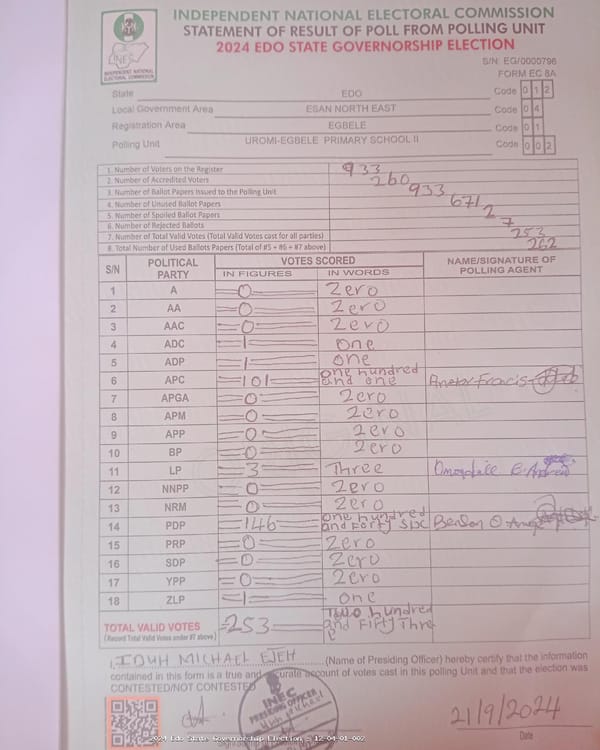 INDEPENDENT NATIONAL ELECTORAL COMMISSION
STATEMENT OF RESULT OF POLL FROM POLLING UNIT
2024 EDO STATE GOVERNORSHIP ELECTION
INEC
INDEPENDENT NATIONAL ELECTORAL COMMISSION
S/N: EG/0000796
FORM EC 8A
State EDO Code 0 1 2
Local Government Area ESAN NORTH EAST Code 0 4
Registration Area EGBELE Code 0 1
Polling Unit UROMI-EGBELE PRIMARY SCHOOL II Code 0 0 2
1. Number of Voters on the Register 933
2. Number of Accredited Voters 260
3. Number of Ballot Papers Issued to the Polling Unit 933
4. Number of Unused Ballot Papers 671
5. Number of Spoiled Ballot Papers 2
6. Number of Rejected Ballots 7
7. Number of Total Valid Votes (Total Valid Votes cast for all parties) 253
8. Total Number of Used Ballots Papers (Total of #5 + #6 + #7 above) 262
S/N POLITICAL PARTY VOTES SCORED NAME/SIGNATURE OF POLLING AGENT
IN FIGURES IN WORDS
1 A 0 Zero
2 AA 0 Zero
3 AAC 0 Zero
4 ADC 1 One
5 ADP 1 One
6 APC 101 One hundred and one Francis
7 APGA 0 Zero
8 APM 0 Zero
9 APP 0 Zero
10 BP 0 Zero
11 LP 3 Three
12 NNPP 0 Zero
13 NRM 0 Zero
14 PDP 146 One hundred and Forty Six Benson O.
15 PRP 0 Zero
16 SDP 0 Zero
17 YPP 0 Zero
18 ZLP 1 One
TOTAL VALID VOTES 253 Two hundred and Fifty Three
(Record Total Valid Votes under #7 above)
I, IDUH MICHAEL EJEH (Name of Presiding Officer) hereby certify that the information
contained in this form is a true and accurate account of votes cast in this polling Unit and that the election was
CONTESTED/NOT CONTESTED
INEC
PRESIDING OFFICER
21/9/2024
Date
2024 Edo State Governorship Election - 12-04-01-002